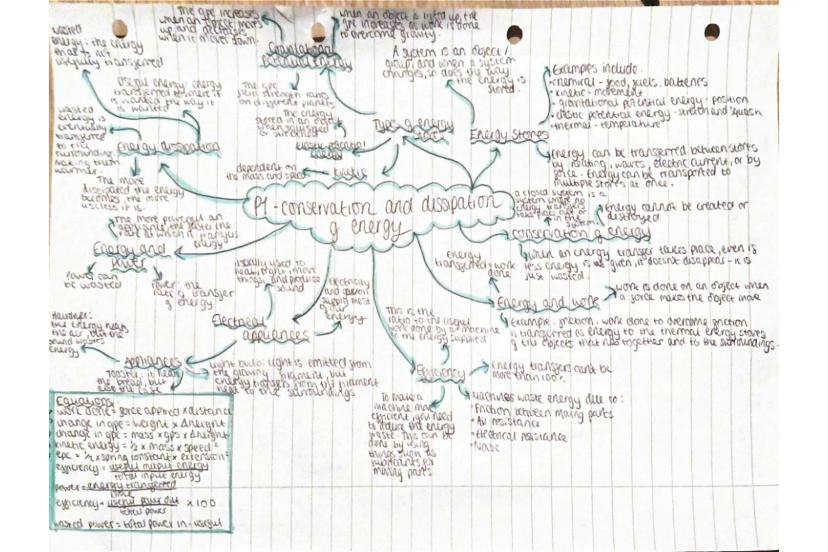 P1-conservation and dissipation
of energy
Gravitational
potential energy
The gpe increases
when an object moves
up and decreases
when it moves down.
when an object is lifted up, the
gpe increases as work is done
to overcome gravity.
The gpe
field strength varies
on different planets
Types of energy
stores
A system is an object/
group, and when a system
changes, so does the way
the energy is
stored.
The energy
stored in an object
when squashed
or stretched
Elastic potential
energy
Kinetic
dependent on
the mass and speed
Energy Stores
Examples include:
• chemical - food, fuels, batteries
• kinetic - movement
• gravitational potential energy - position
• elastic potential energy - stretch and squash
• thermal - temperature
Energy can be transferred between stores
by heating, waves, electric current, or by
force. Energy can be transported to
multiple stores at once.
conservation of energy
a closed system is a
system where no
energy transfers
take place out of
the system
Energy cannot be created or
destroyed
when an energy transfer takes place, even is
less energy is given, it doesn't disappear - it is
just wasted.
Energy and work
Energy
transferred = work
done
work is done on an object when
a force makes the object move
Example - friction. work done to overcome friction
is transferred as energy to the thermal energy stores
of the objects that rub together and to the surroundings.
Efficiency
This is the
ratio to the useful
work done by a machine
to the energy supplied
Energy transfers can't be
more than 100%.
Machines waste energy due to:
• Friction between moving parts
• Air resistance
• Electrical resistance
• Noise
To make a
machine more
efficient, you need
to reduce the energy
waste. This can be
done by using
things such as
lubricants for
moving parts
Electrical
appliances
usually used to
heat, light, move
things, and produce
sound
Electricity
and gas
supply most
of our
energy
Appliances
Hairdryer:
the energy heats
the air, but the
sound wastes
energy
Toaster: it heats
the bread, but
also the case
Light bulb: light is emitted from
the glowing filament, but
energy transfers from the filament
heat to the surroundings
Energy and
power
The more powerful an
appliance, the faster the
rate at which it transfers
energy
Power can
be wasted
Power: the
rate of transfer
of energy
Energy dissipation
wasted
energy: the energy
that is not
usefully transferred
Useful energy: energy
transferred to where it
is wanted the way it
is wanted
wasted
energy is
eventually
transferred
to the
surroundings,
making them
warmer.
The more
dissipated the energy
becomes, the more
useless it is.
Equations
• work done = force applied x distance
• change in gpe = weight x Δheight
• change in gpe = mass x gfs x Δheight
• kinetic energy = ½ x mass x speed²
• epe = ½ x spring constant x extension²
efficiency = useful output energy
total input energy
power = energy transferred
time
efficiency = useful power out x 100
total power
wasted power = total power in - useful